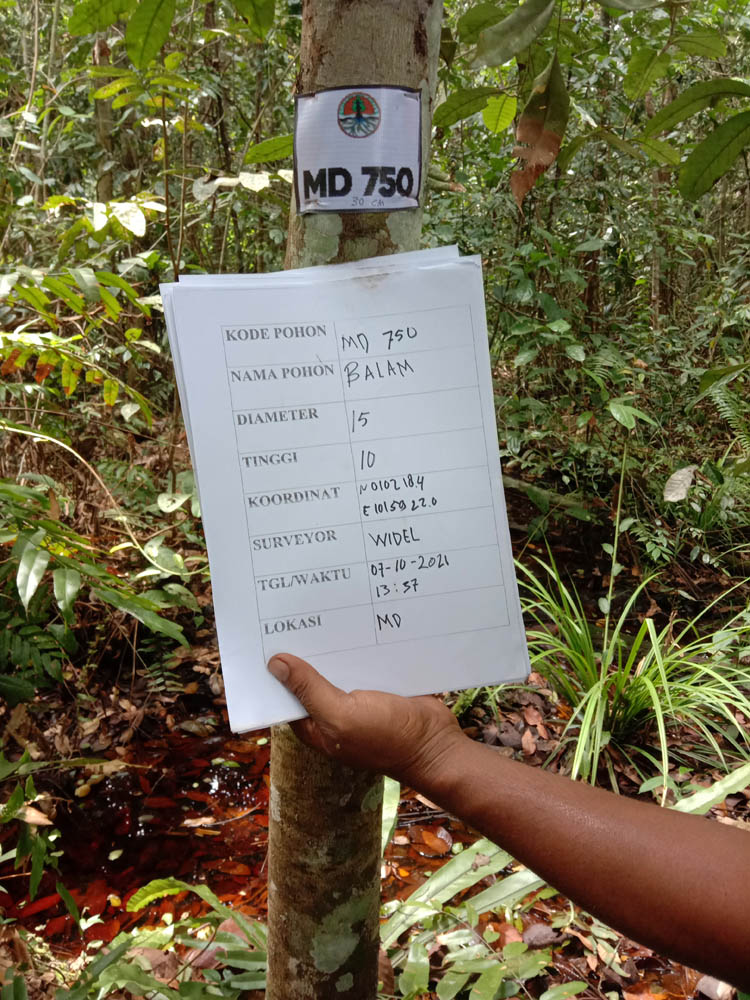 MD 750
30 CM
KODE POHON MD 750
NAMA POHON BALAM
DIAMETER 15
TINGGI 10
KOORDINAT N0102184
E1015922.0
SURVEYOR WIDEL
TGL/WAKTU 07-10-2021
13:57
LOKASI MD